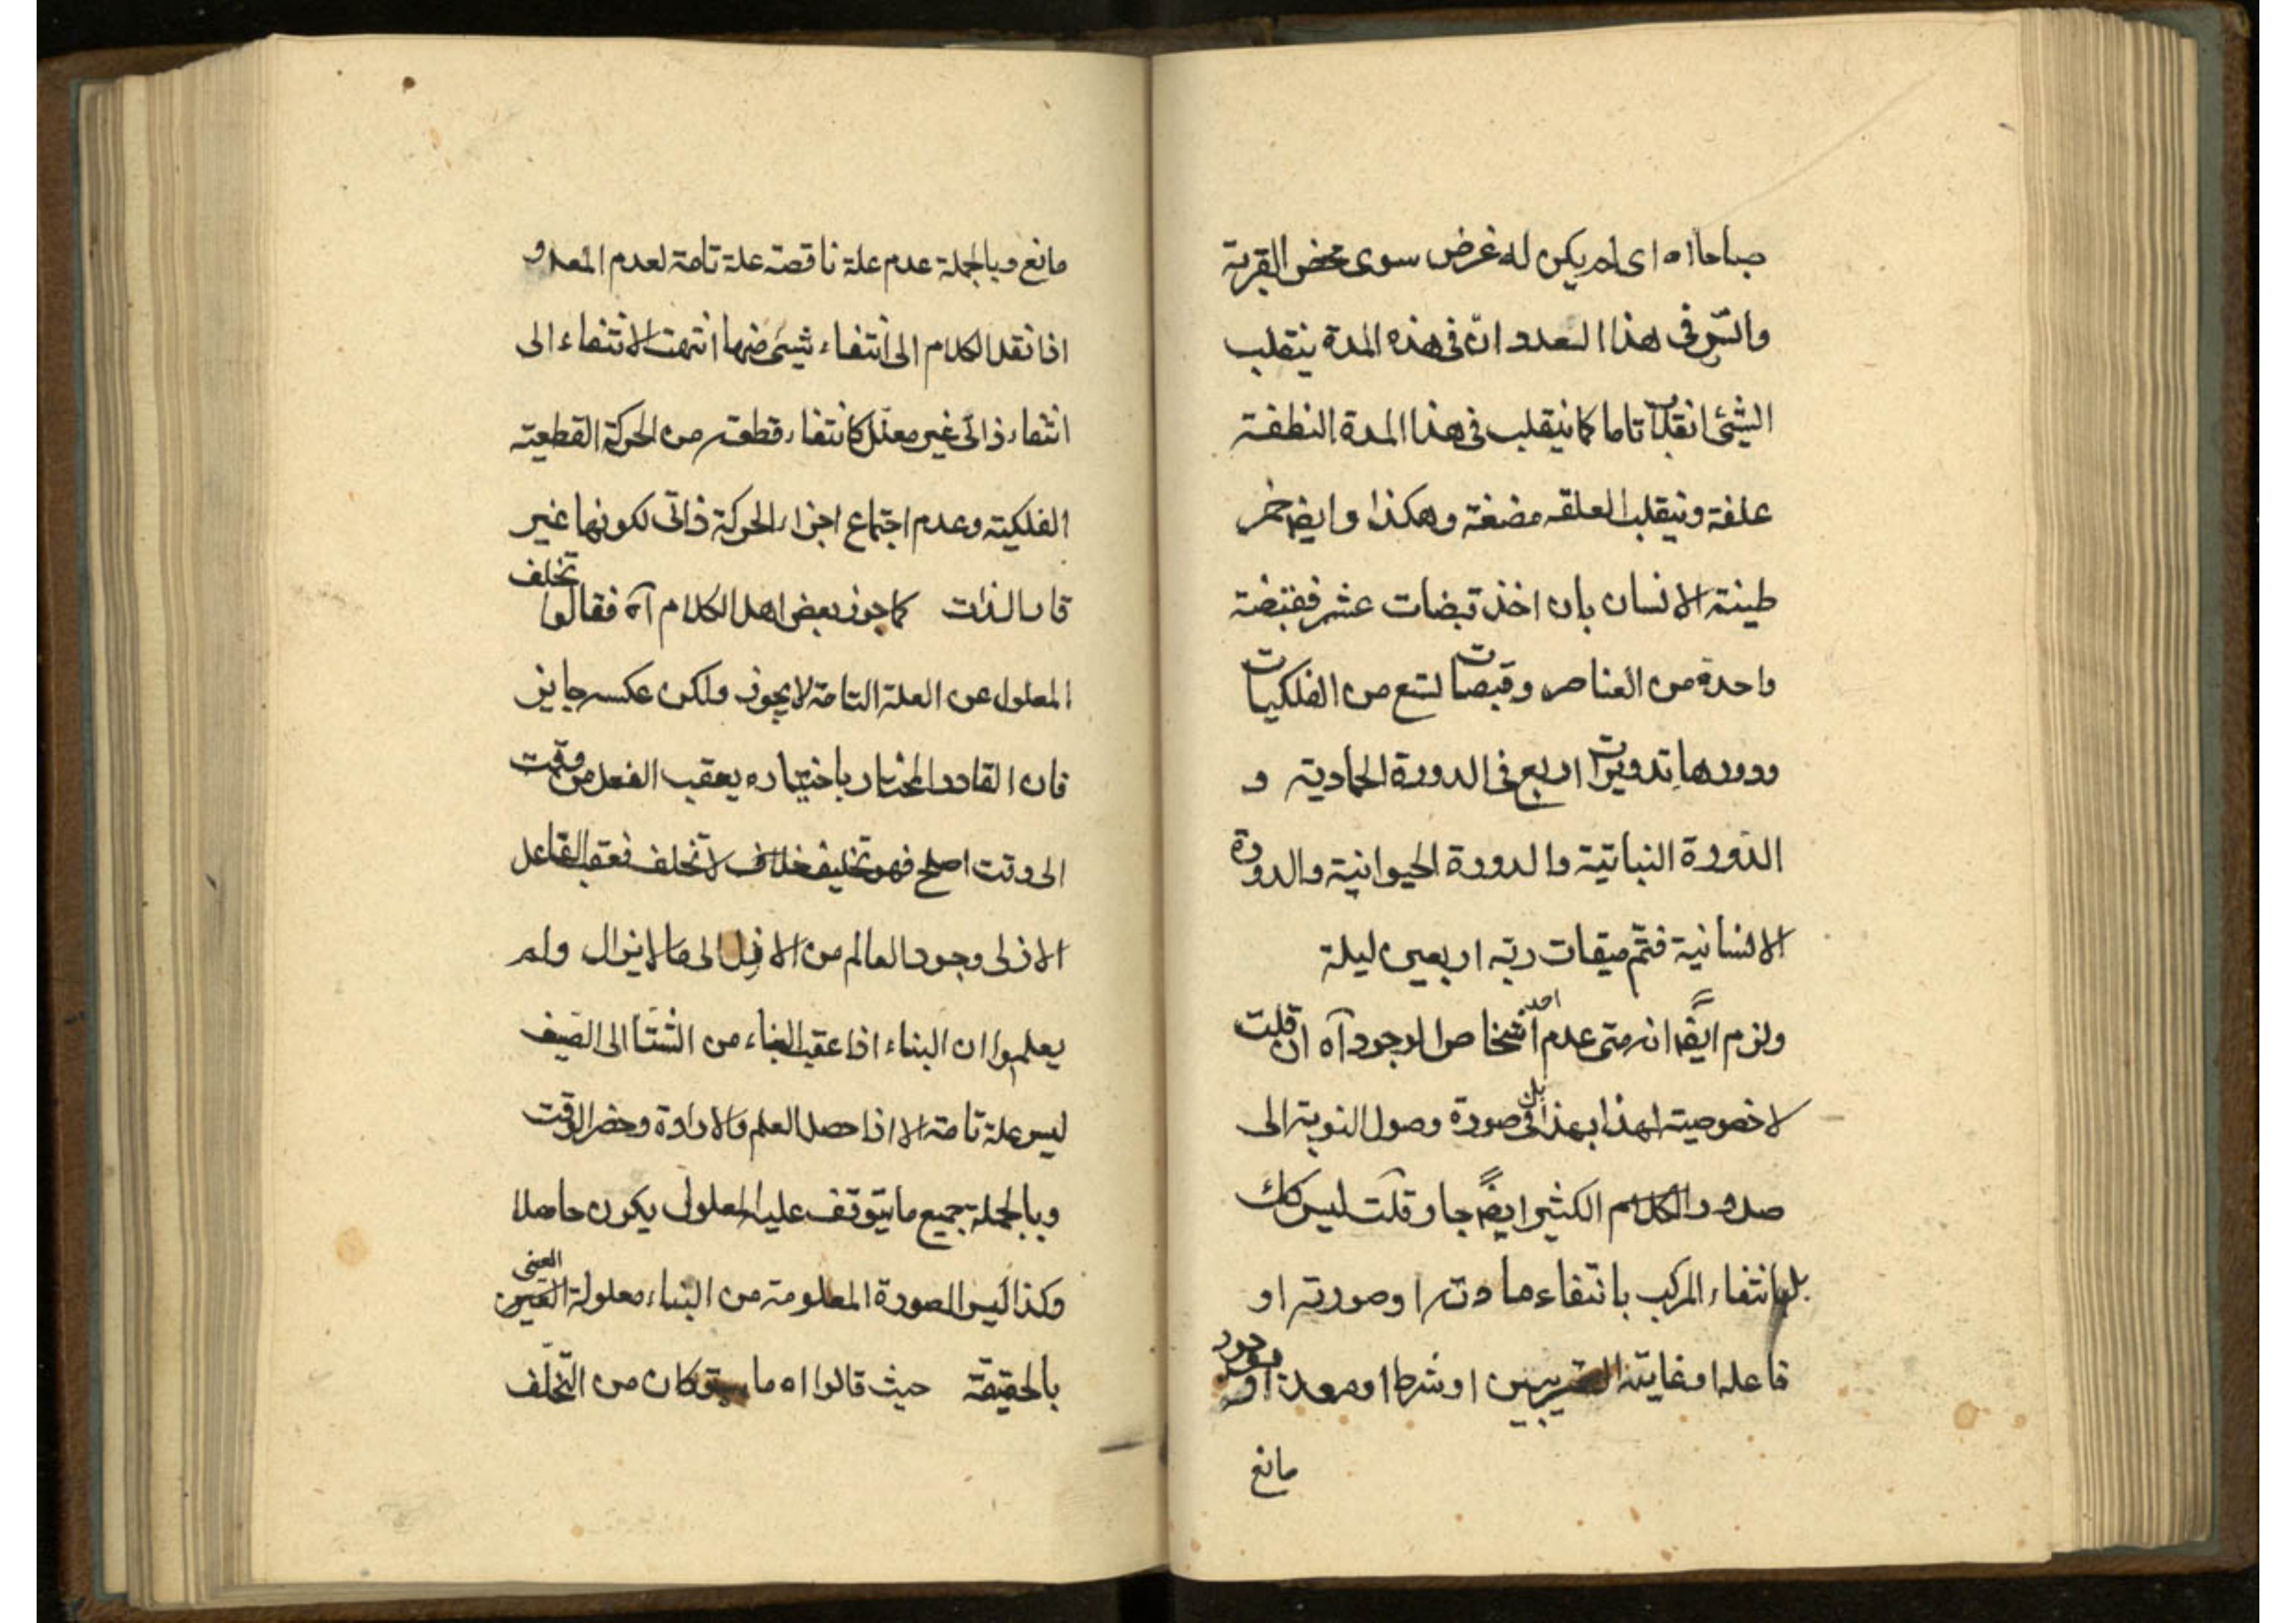 صباحا اه ای لم یکن له غرض سوی محض القربة
والسّر فی هذا العدد انّ فی هذه المدة ینقلب
الشیٔ انقلابا تاما کما ینقلب فی هذا المدة النطفة
علقة و ینقلب العلقه مضغة و هکذا و ایضا خمر
طینة الانسان بان اخذ قبضات عشر فقبضة
واحدة من العناصر و قبضات تسع من الفلکیات
و دورها تدویرات اربع فی الدورة الجمادیة و
الدّورة النباتیة و الدورة الحیوانیة و الدورة
الانسانیة فتمّ میقات ربّه اربعین لیلة
ولزم ایضًا انه متی عدم احد اشخاص الوجود آه ان قلت
لا خصوصیة لهذا بهذا بل فی صورة وصول النوبة الی
صدور الکثیر ایضًا جار قلت لیس کک
بل بانتفاء المرکب بانتفاء مادته او صورته او
فاعله او غایته القریبین او شرط او معد او وجود
مانع
مانع و بالجملة عدم علة ناقصة علة تامة لعدم المعلول و
اذا نقل الکلام الی انتفاء شیئ منها انتهت الانتفاء الی
انتفاء ذاتی غیر معلّل کانتفاء قطعة من الحرکة القطعیة
الفلکیة و عدم اجتماع اجزاء الحرکة ذاتی لکونها غیر
قار الذات کما جوز بعض اهل الکلام آه فقالوا تخلف
المعلول عن العلة التامة لا یجوز ولکن عکسه جایز
فان القادر المختار باختیاره یعقب الفعل من وقت
الی وقت اصلح فهو تخلیف لا تخلف فعقب الفاعل
الازلی وجود العالم من الازل الی ما لا یزال ولم
یعلموا ان البناء اذا عقب البناء من الشتا الی الصیف
لیس علة تامة الا اذا حصل العلم و الارادة و حضر الوقت
و بالجملة جمیع ما یتوقف علیه المعلول یکون حاصلا
وکذا لیس الصورة المعلومة من البناء معلولة العینی
بالحقیقة حیث قالوا اه ما کان من التخلّف